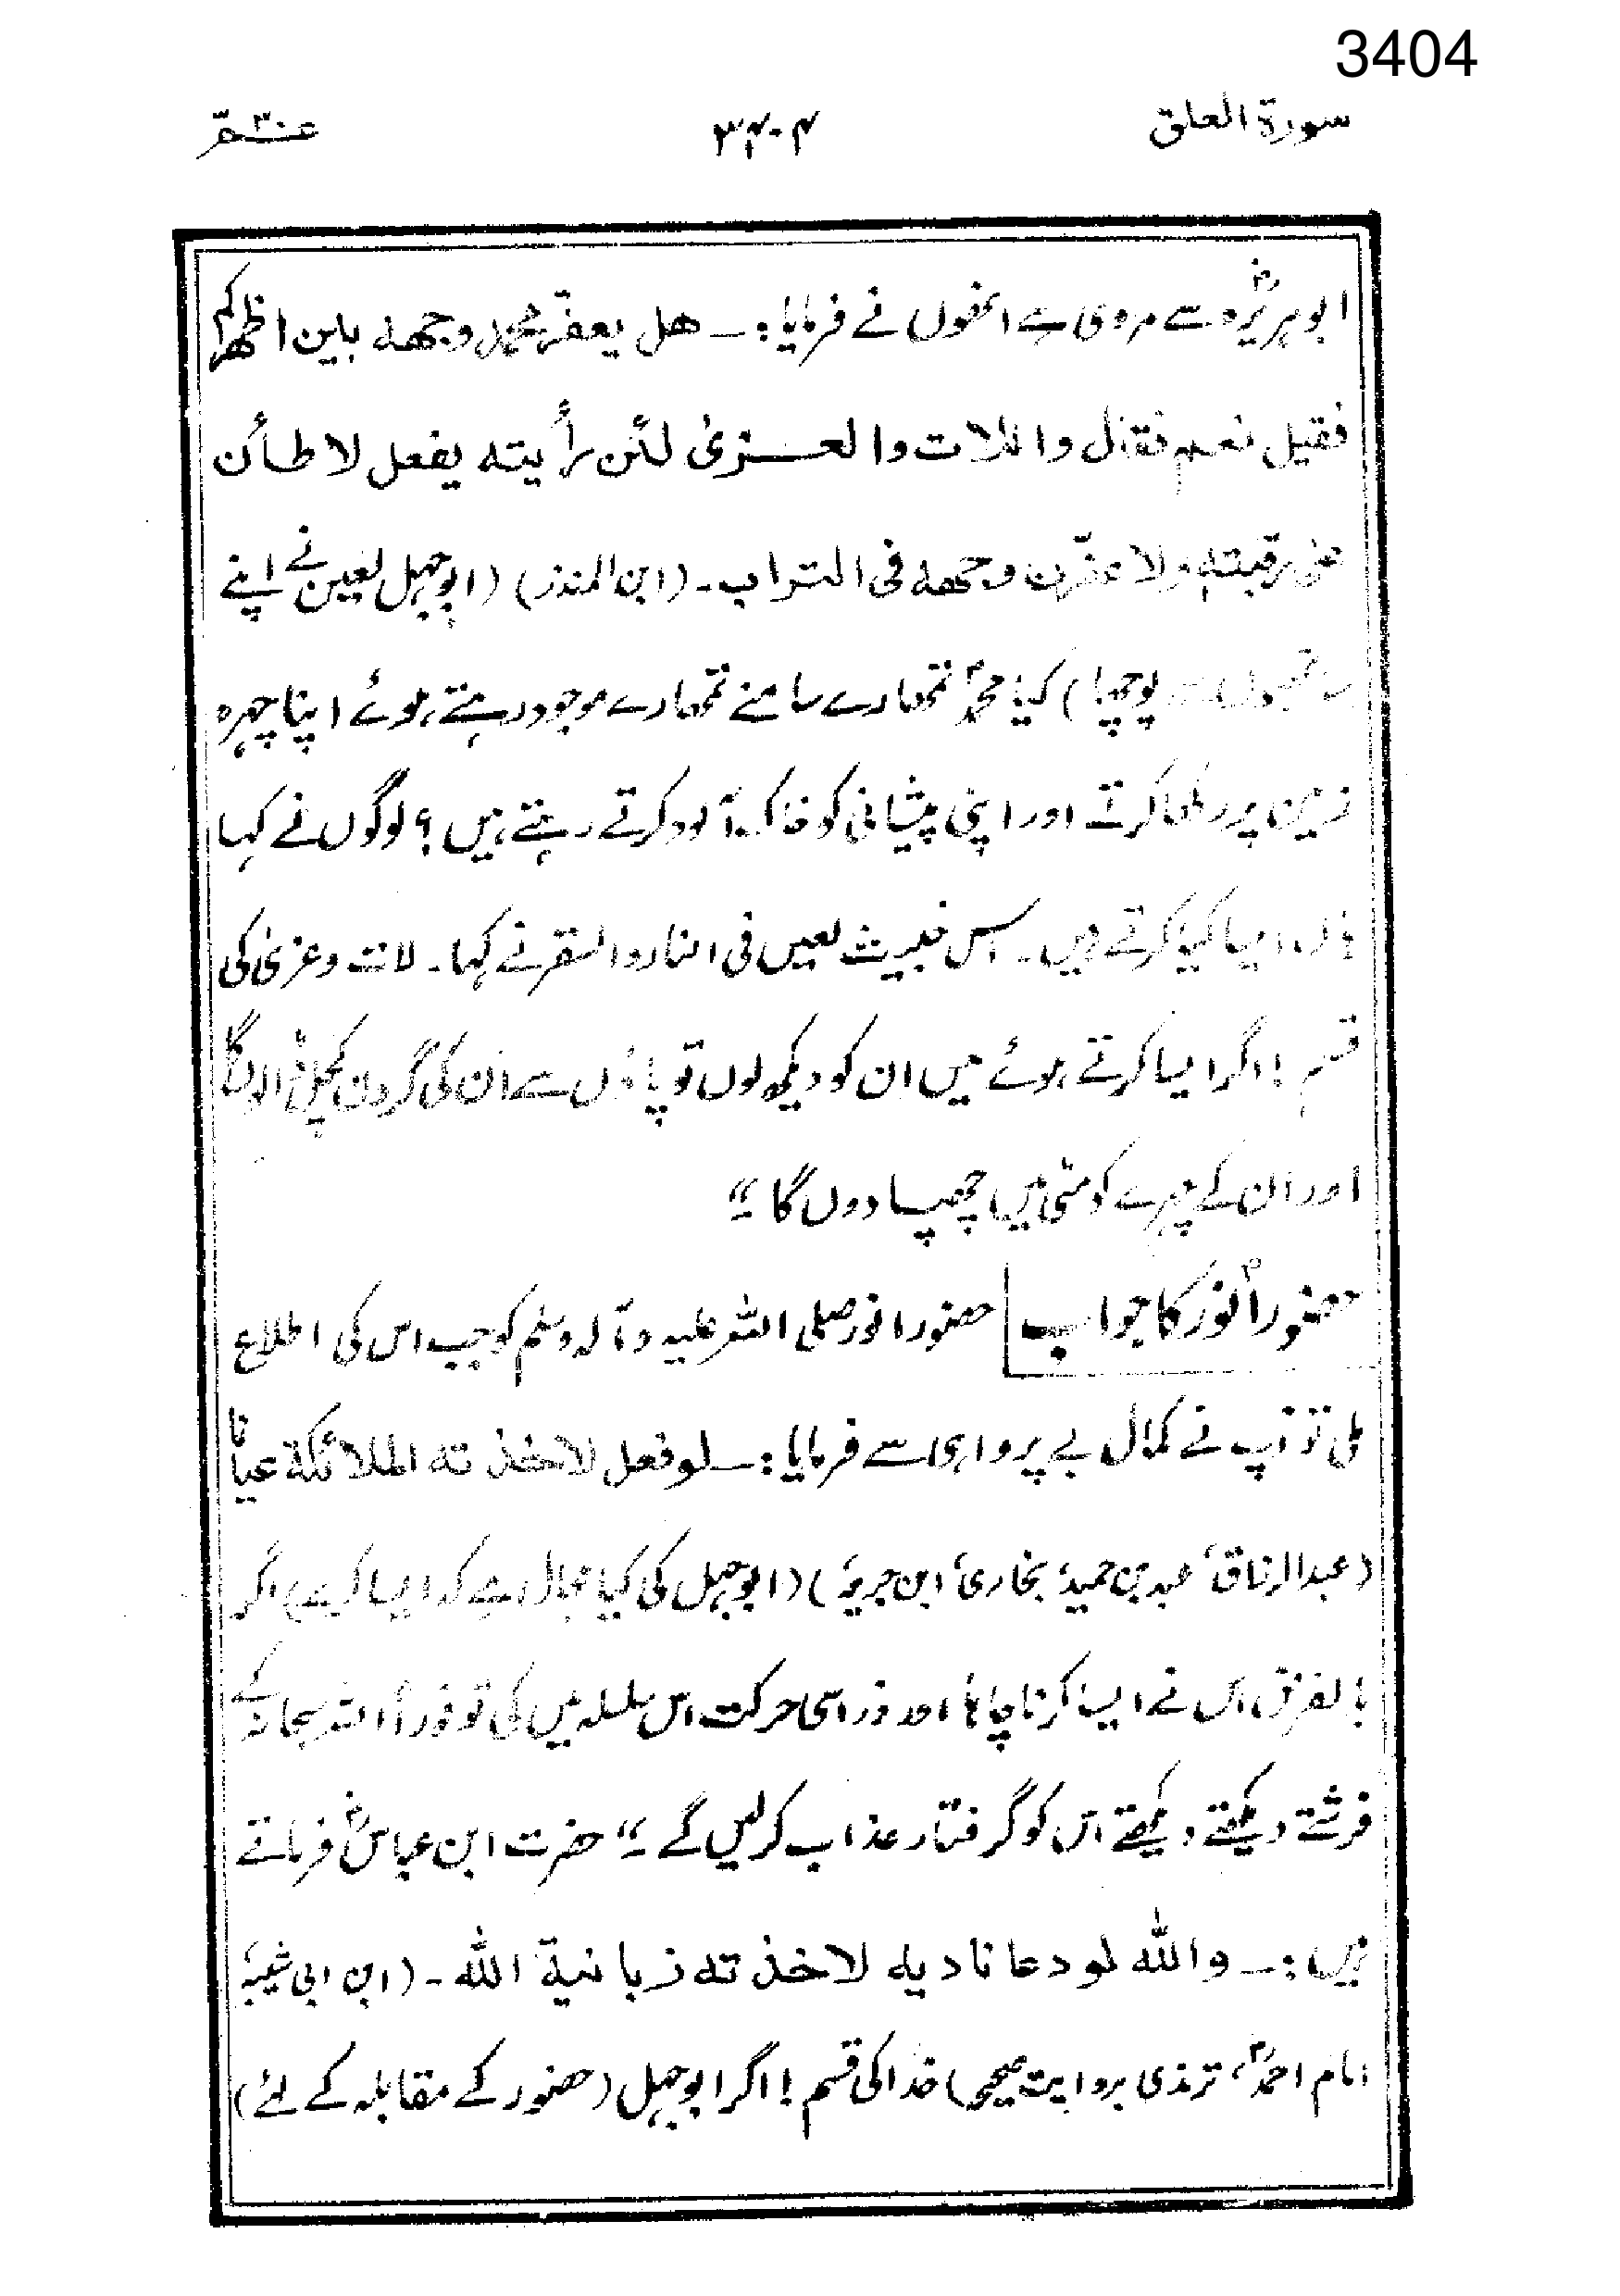 3404
سورة العلق
۳۴۰۴
عـــمّ۳۰
ابوہریرہؓ سے مروی ہے انھوں نے فرمایا:۔ ھل یعفر محمد وجھہ بین اظھرکم
فقیل نعم فقال واللات والعزیٰ لئن رأیتہ یفعل لاطأن
علی رقبتہ ولاعفّرن وجھہ فی التراب۔ (ابن المنذر) (ابوجہل لعین نے اپنے
ساتھیوں سے پوچھا) کیا محمدؐ تمھارے سامنے تمھارے موجود رہتے ہوئے اپنا چہرہ
زمین پر رکھا کرتے اور اپنی پیشانی کو خاک آلود کرتے رہتے ہیں؟ لوگوں نے کہا
ہاں ایسا کیا کرتے ہیں۔ اس خبیث لعین فی النار والسقر نے کہا۔ لات وعزیٰ کی
قسم! اگر ایسا کرتے ہوئے میں ان کو دیکھ لوں تو پاؤں سے ان کی گردن کچل ڈالوں گا
اور ان کے چہرے کو مٹی میں چھپا دوں گا۔"
حضور انورؐ کا جواب حضور انور صلی اللہ علیہ وآلہ وسلم کو جب اس کی اطلاع
ملی تو آپ نے کمال بے پرواہی سے فرمایا:۔ لوفعل لاخذ تہ الملائکة عیاناً
(عبدالرزاق، عبد بن حمید، بخاری، ابن جریر) (ابوجہل کی کیا مجال ہے کہ ایسا کرے) اگر
بالفرض اس نے ایسا کرنا چاہا اور ذرا سی حرکت اس سلسلہ میں کی تو فوراً اللہ سبحانہ کے
فرشتے دیکھتے دیکھتے اس کو گرفتار عذاب کرلیں گے۔" حضرت ابن عباسؓ فرماتے
ہیں:۔ واللہ لودعا نادیہ لاخذ تہ زبانیة اللہ۔ (ابن ابی شیبہ،
امام احمدؒ، ترمذی بروایت صحیح) خدا کی قسم! اگر ابوجہل (حضور کے مقابلہ کے لئے)